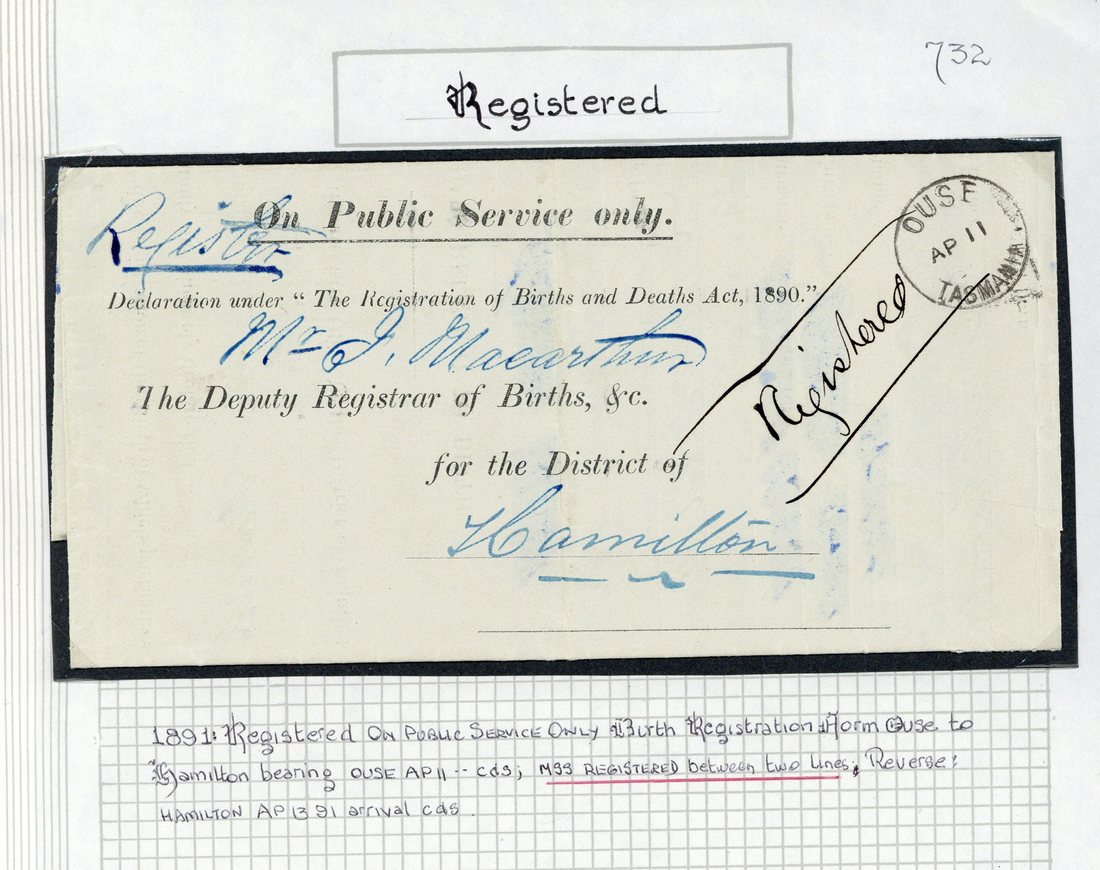 732
Registered
Register
On Public Service only.
OUSE
AP 11
TASMANIA
Declaration under “ The Registration of Births and Deaths Act, 1890.”
Mr J. Macarthur
Registered
The Deputy Registrar of Births, &c.
for the District of
Hamilton
1891: Registered ON PUBLIC SERVICE ONLY Birth Registration Form Ouse to
Hamilton bearing OUSE AP 11 -- cds; MSS REGISTERED between two lines; Reverse:
HAMILTON AP 13 91 arrival cds.